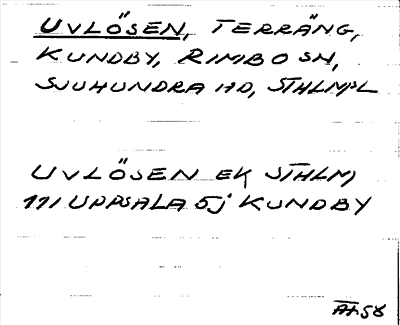 UVLÖSEN, TERRÄNG,
KUNDBY, RIMBO SN,
SJUHUNDRA HD, STHLM:L
UVLÖSEN EK STHLM
111 UPPSALA 5j KUNDBY
ÄH58